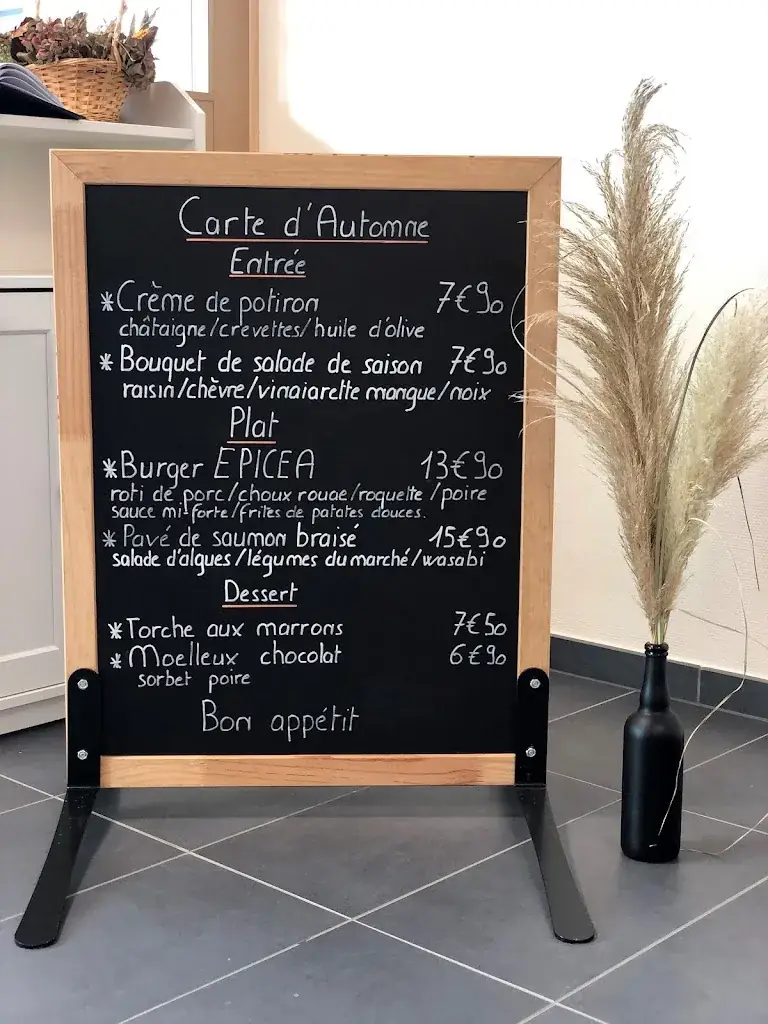 Carte d'Automne
Entrée
*Crème de potiron 7€90
châtaigne/crevettes/huile d'olive
*Bouquet de salade de saison 7€90
raisin/chèvre/vinaiarette mangue/noix
Plat
*Burger EPICEA 13€90
roti de porc/choux rouae/roquette/poire
sauce mi-forte/frites de patates douces.
*Pavé de saumon braisé 15€90
salade d'algues/légumes du marché/wasabi
Dessert
*Torche aux marrons 7€50
*Moelleux chocolat 6€90
sorbet poire
Bon appétit